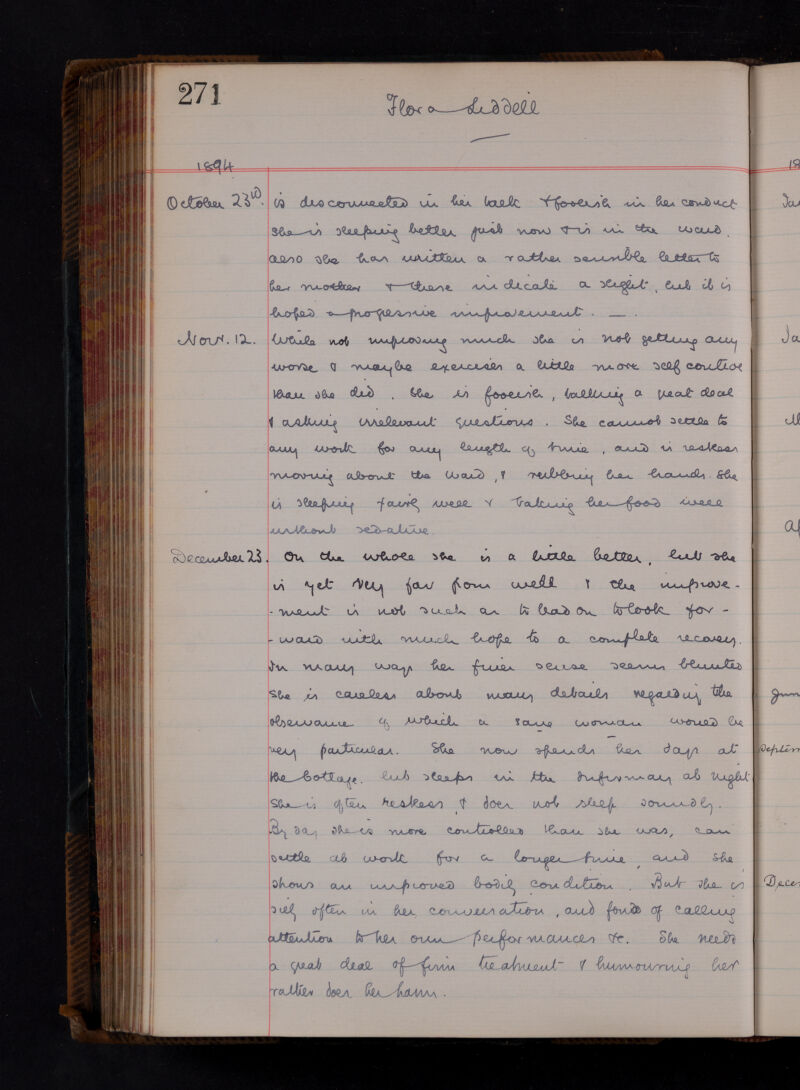 271
Flora Liddell
1894
October 23rd. is disconnected in her talk & foolish in her conduct
She is sleeping better just now & is in the ward.
also she has written a rather sensible letter to
her mother & these indicate a slight, but it is
hoped a progressive improvement. —.
Nov. 12. While not improving much she is not getting any
worse & maybe exercises a little more self control
than she did. She is foolish, talking a great deal
& asking irrelevant questions. She cannot settle to
any work for any length of time, and is restless
moving about the ward, & rubbing her hands. She
is sleeping fairly well & taking her food well
without sedative.
December 23. On the whole she is a little better, but she
is yet very far from well & the improve-
-ment is not such as to lead on to look for-
-ward with much hope to a complete recovery.
In many ways her finer sense seems blunted
She is careless about many details regarding the
observance of which a sane woman would be
very particular. She now spends her days at
the Cottage, but sleeps in the Infirmary at night
She is often restless & does not sleep soundly.
By day she is more controlled than she was, can
settle at work for a longer time, and she
shows an improved bodily condition. But she is
silly often in her conversation, and fond of calling
attention to her own performances &c. She needs
a great deal of firm treatment & humouring her
rather does her harm.
18
Ja
Ap
Jun
Septem
Dece